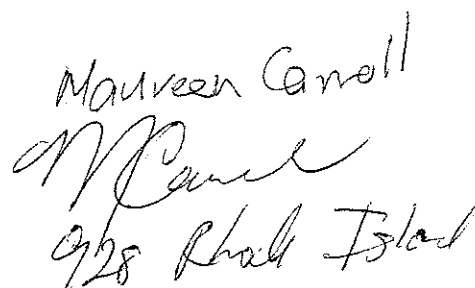 Maureen Carroll
MCarroll
928 Rhode Island